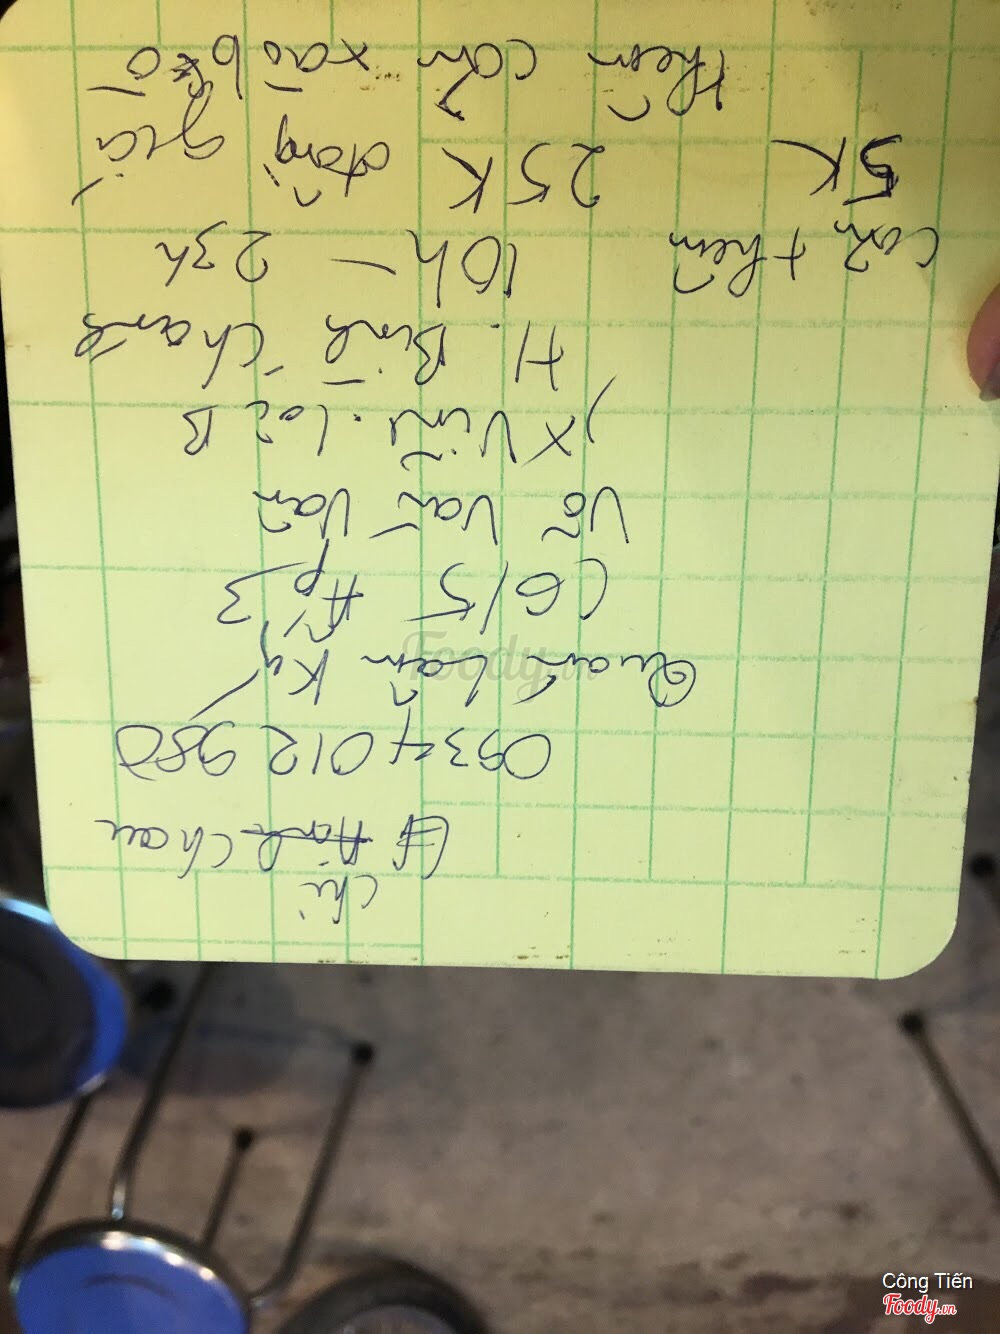 Chị
Châu
0934012980
Quán Lâm Ký
C6/5 Ấp 3
Võ Văn Vân
X Vĩnh Lộc B
H. Bình Chánh
10h - 23h
Cơm thêm
5K
25K đồng giá
thêm cơm xào bò
Foody.vn
Công Tiến
Foody.vn